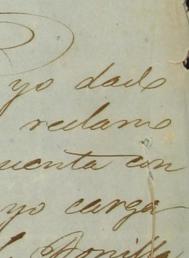 yo dado
reclamo
cuenta con
yo cargo
Bonilla